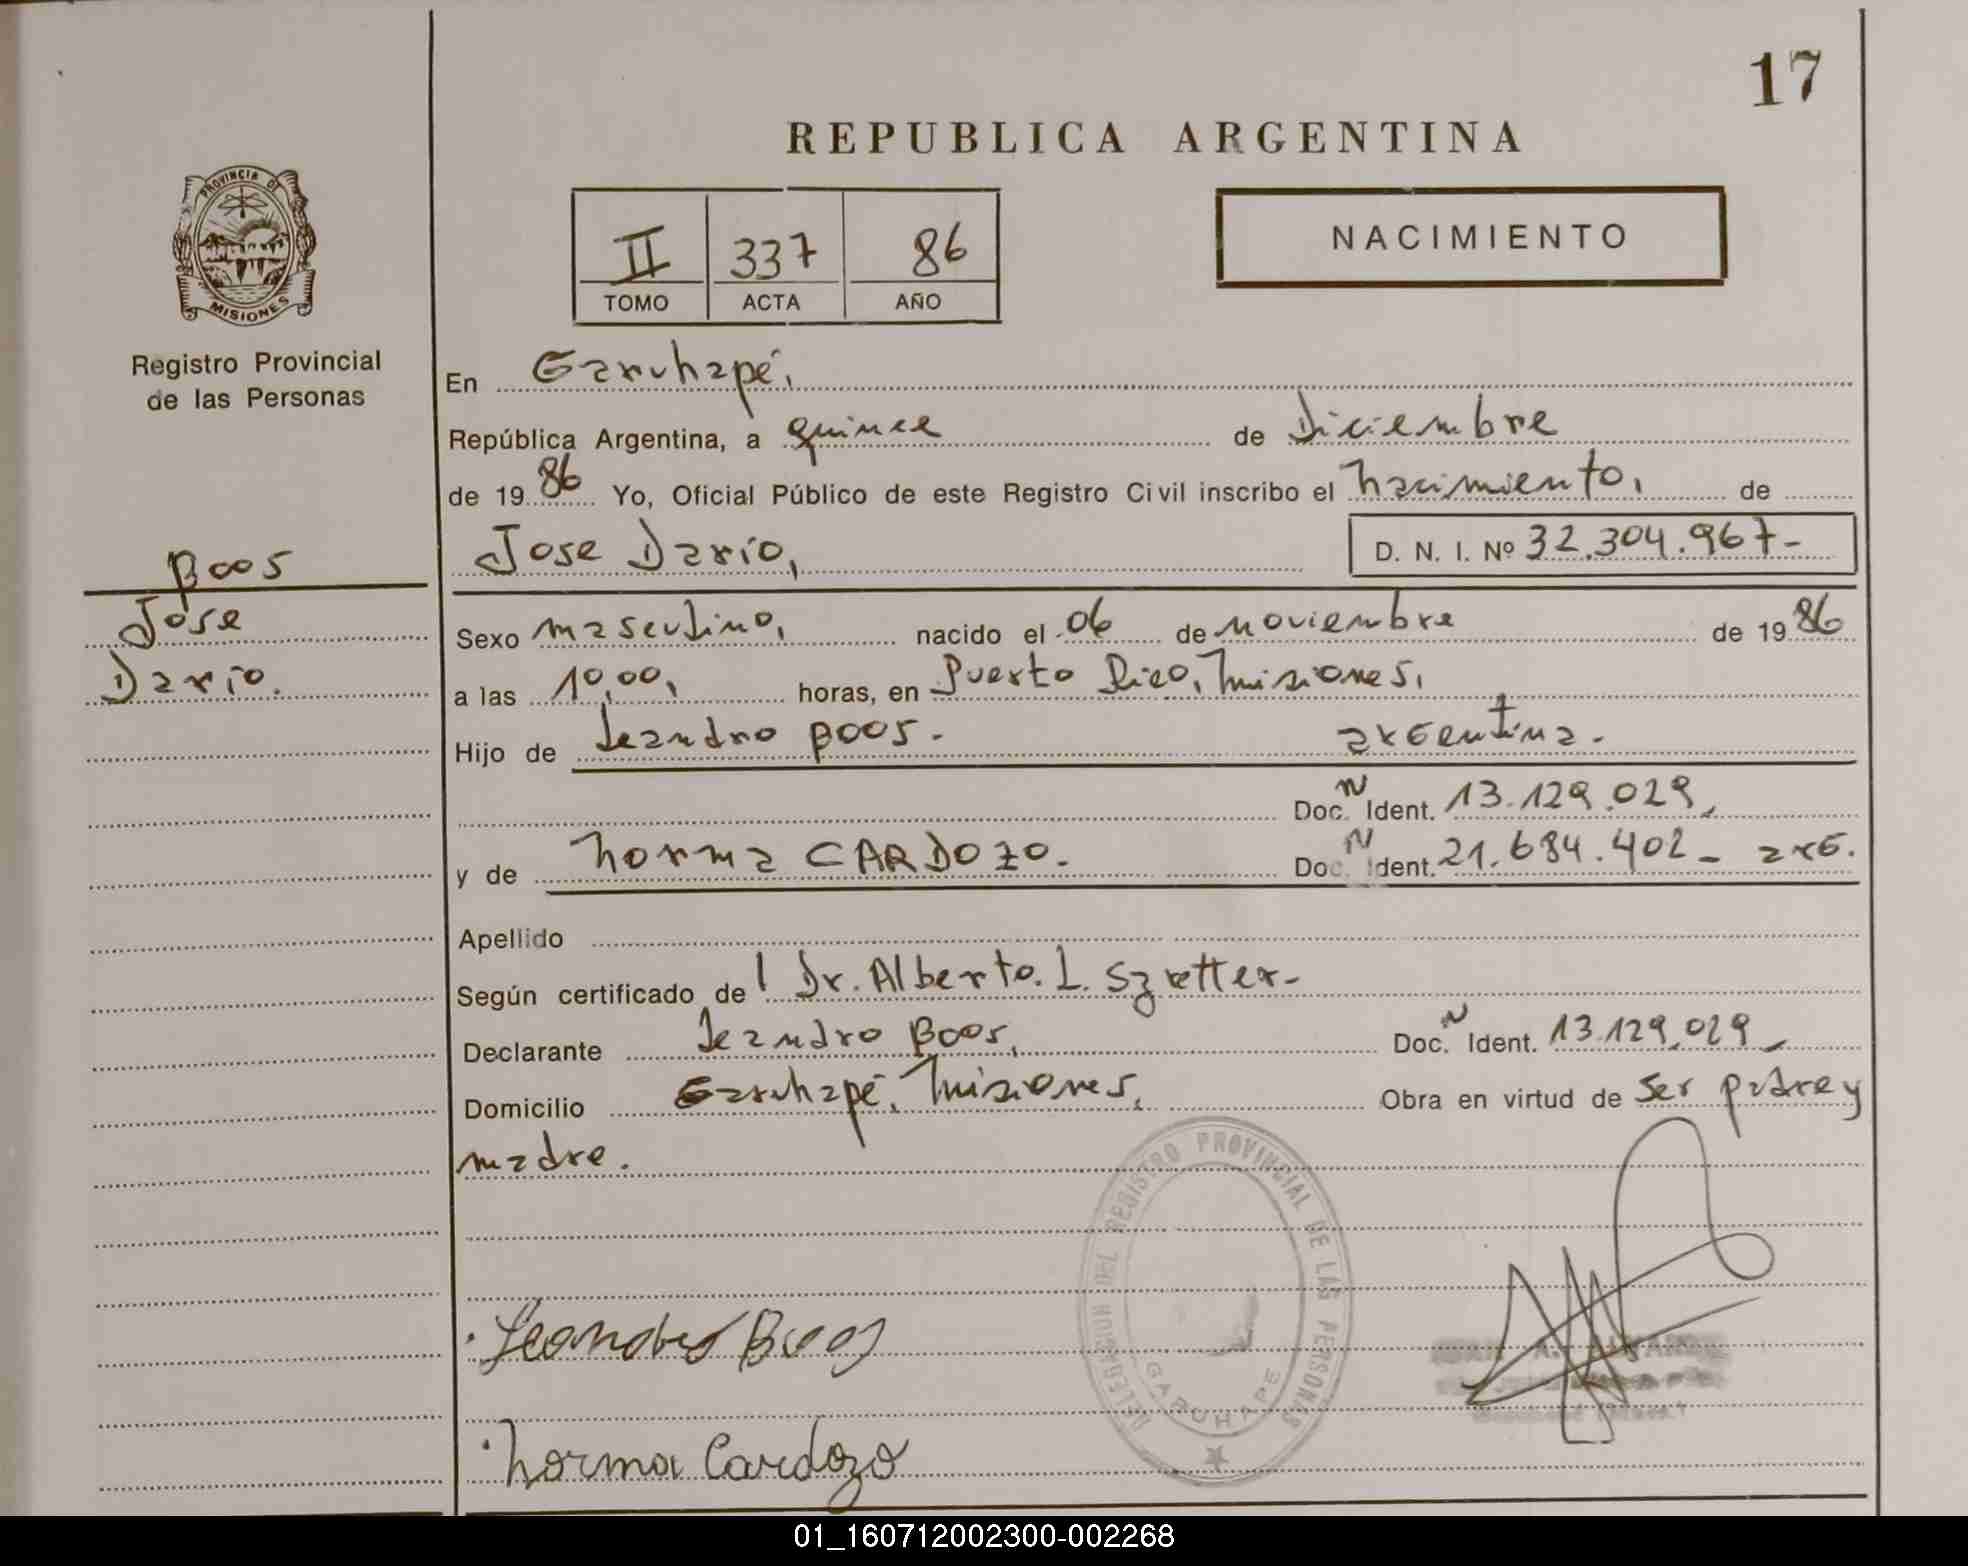 17
REPUBLICA ARGENTINA
PROVINCIA DE
MISIONES
II 337 86
TOMO ACTA AÑO
NACIMIENTO
Registro Provincial
de las Personas
En Garuhapé,
República Argentina, a quince de Diciembre
de 19 86 Yo, Oficial Público de este Registro Civil inscribo el nacimiento, de
Jose Dario, D. N. I. Nº 32.304.967-
Boos
Jose
Dario.
Sexo masculino, nacido el 06 de noviembre de 19 86
a las 10,00, horas, en Puerto Rico, Misiones,
Hijo de Leandro Boos. argentina.
Doc. N Ident. 13.129.029,
y de Norma CARDOZO. Doc. N Ident. 21.684.402- arg.
Apellido
Según certificado de l Dr. Alberto. L. Szretter-
Declarante Leandro Boos, Doc. N Ident. 13.129,029
Domicilio Garuhapé, Misiones, Obra en virtud de ser padre y
madre.
DELEGACION DEL REGISTRO PROVINCIAL DE LAS PERSONAS
GARUHAPE
Leandro Boos
Norma Cardozo
01_160712002300-002268